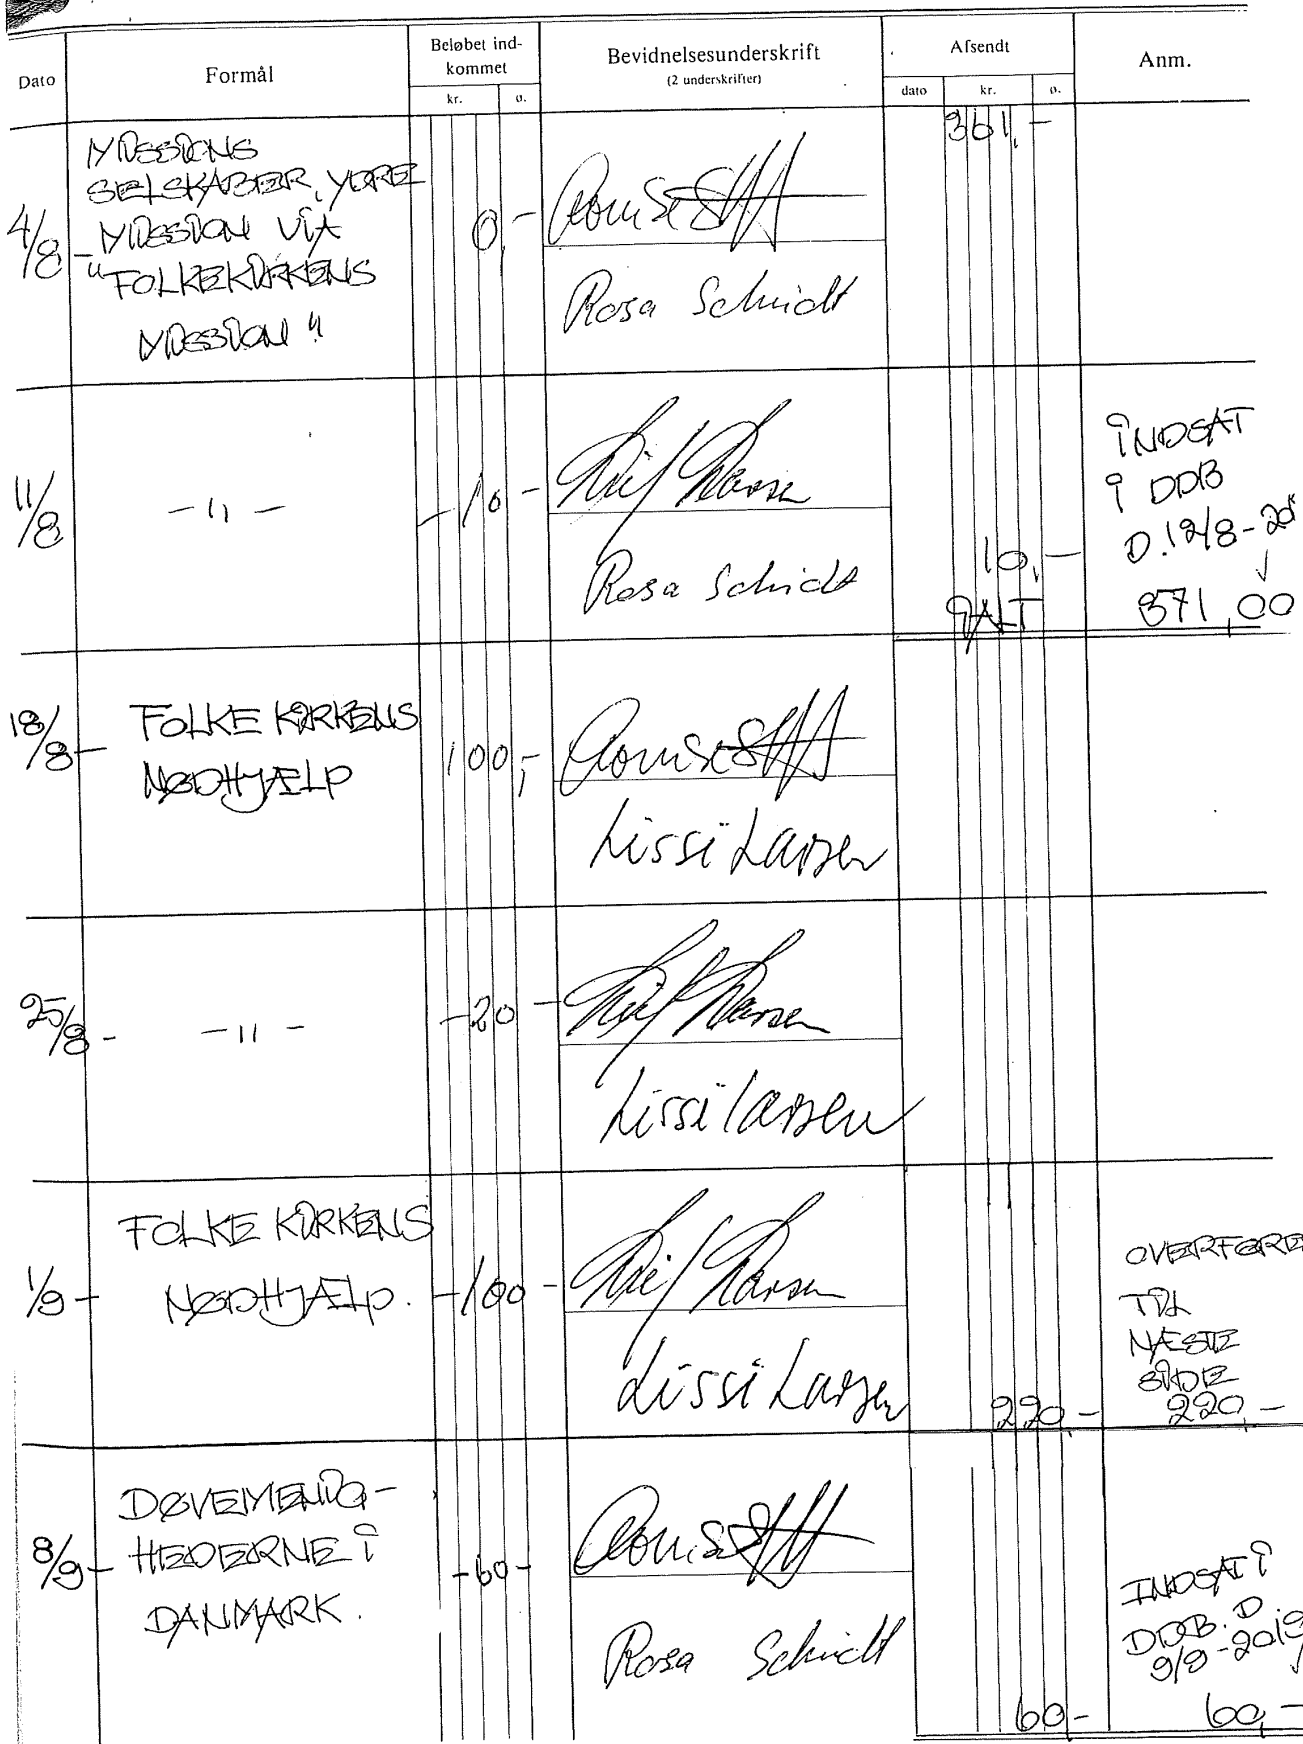 Dato Formål Beløbet ind-
kommet Bevidnelsesunderskrift
(2 underskrifter) Afsendt Anm.
kr. ø. dato kr. ø.
361,-
MISSIONS
SELSKABER, YDRE
4/8 - MISSION VIA 0,-
"FOLKEKIRKENS
MISSION"
Rosa Schmidt
11/8 - 11 - - 10 -
Rosa Schmidt
10,-
IALT
INDSAT
I DDB
D. 12/8 -
371,00
18/8 - FOLKE KIRKENS
NØDHJÆLP 100,-
Lissi Larsen
25/8 - - 11 - - 20 -
Lissi Larsen
1/9 - FOLKE KIRKENS
NØDHJÆLP. - 100 -
Lissi Larsen
220,-
OVERFØRE
TIL
NÆSTE
SIDE
220,-
8/9 - DØVEMENIG-
HEDERNE I
DANMARK. - 60 -
Rosa Schmidt
60 -
INDSAT I
DDB. D.
9/9 - 2019
60,-